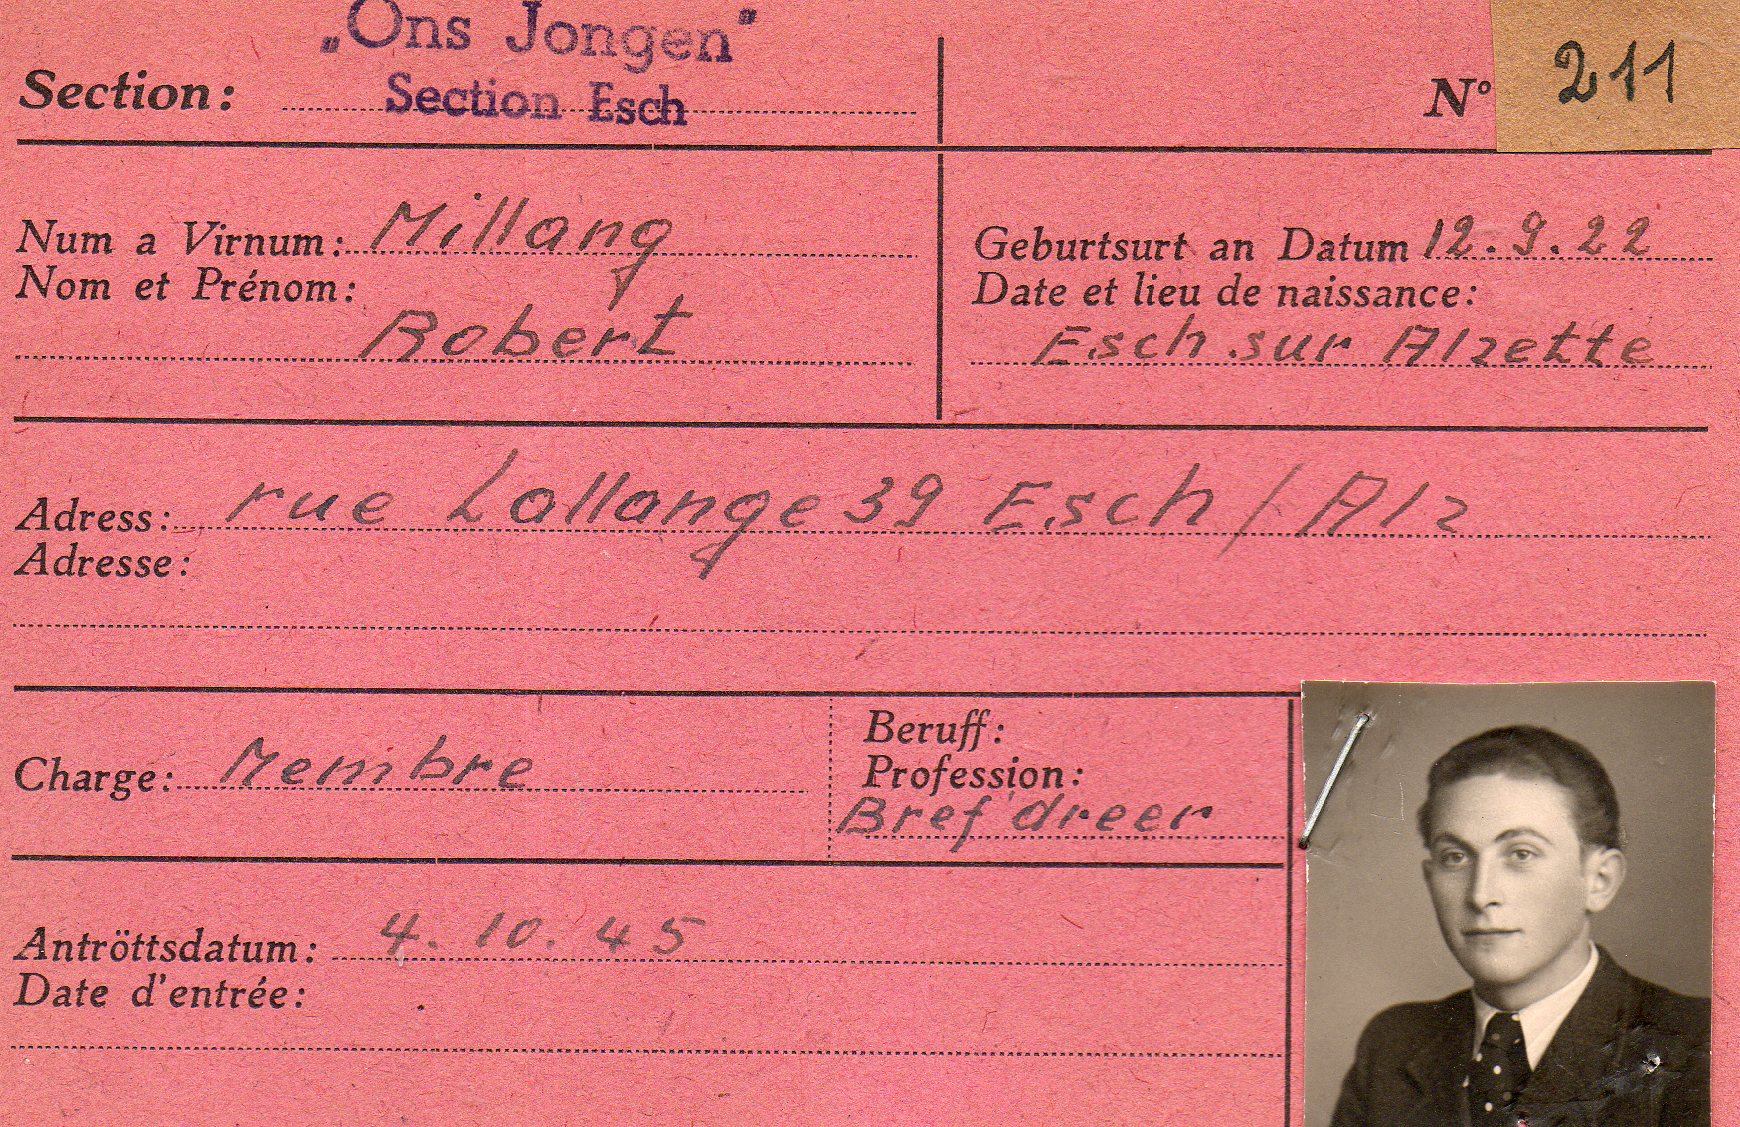 „Ons Jongen"
Section: Section Esch
N° 211
Num a Virnum: Millang
Nom et Prénom:
Robert
Geburtsurt an Datum 12.9.22
Date et lieu de naissance:
Esch sur Alzette
Adress: rue Lallange 39 Esch / Alz
Adresse:
Charge: Membre
Beruff:
Profession:
Bref'dreer
Antröttsdatum: 4. 10. 45
Date d'entrée: